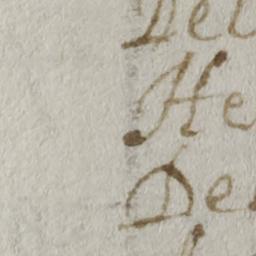 Del
He
De